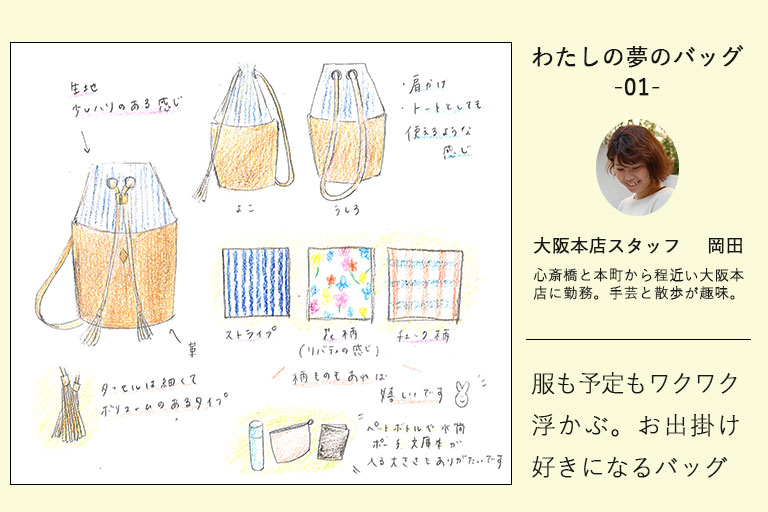 生地
少しハリのある感じ
よこ
うしろ
・肩かけ
・トートとしても
使えるような
感じ
ストライプ
花柄
(リバティの感じ)
チェック柄
革
柄ものもあれば
嬉しいです
タッセルは細くて
ボリュームのあるタイプ
ペットボトルや水筒
ポーチ 文庫本が
入る大きさとありがたいです
わたしの夢のバッグ
-01-
大阪本店スタッフ 岡田
心斎橋と本町から程近い大阪本
店に勤務。手芸と散歩が趣味。
服も予定もワクワク
浮かぶ。お出掛け
好きになるバッグ